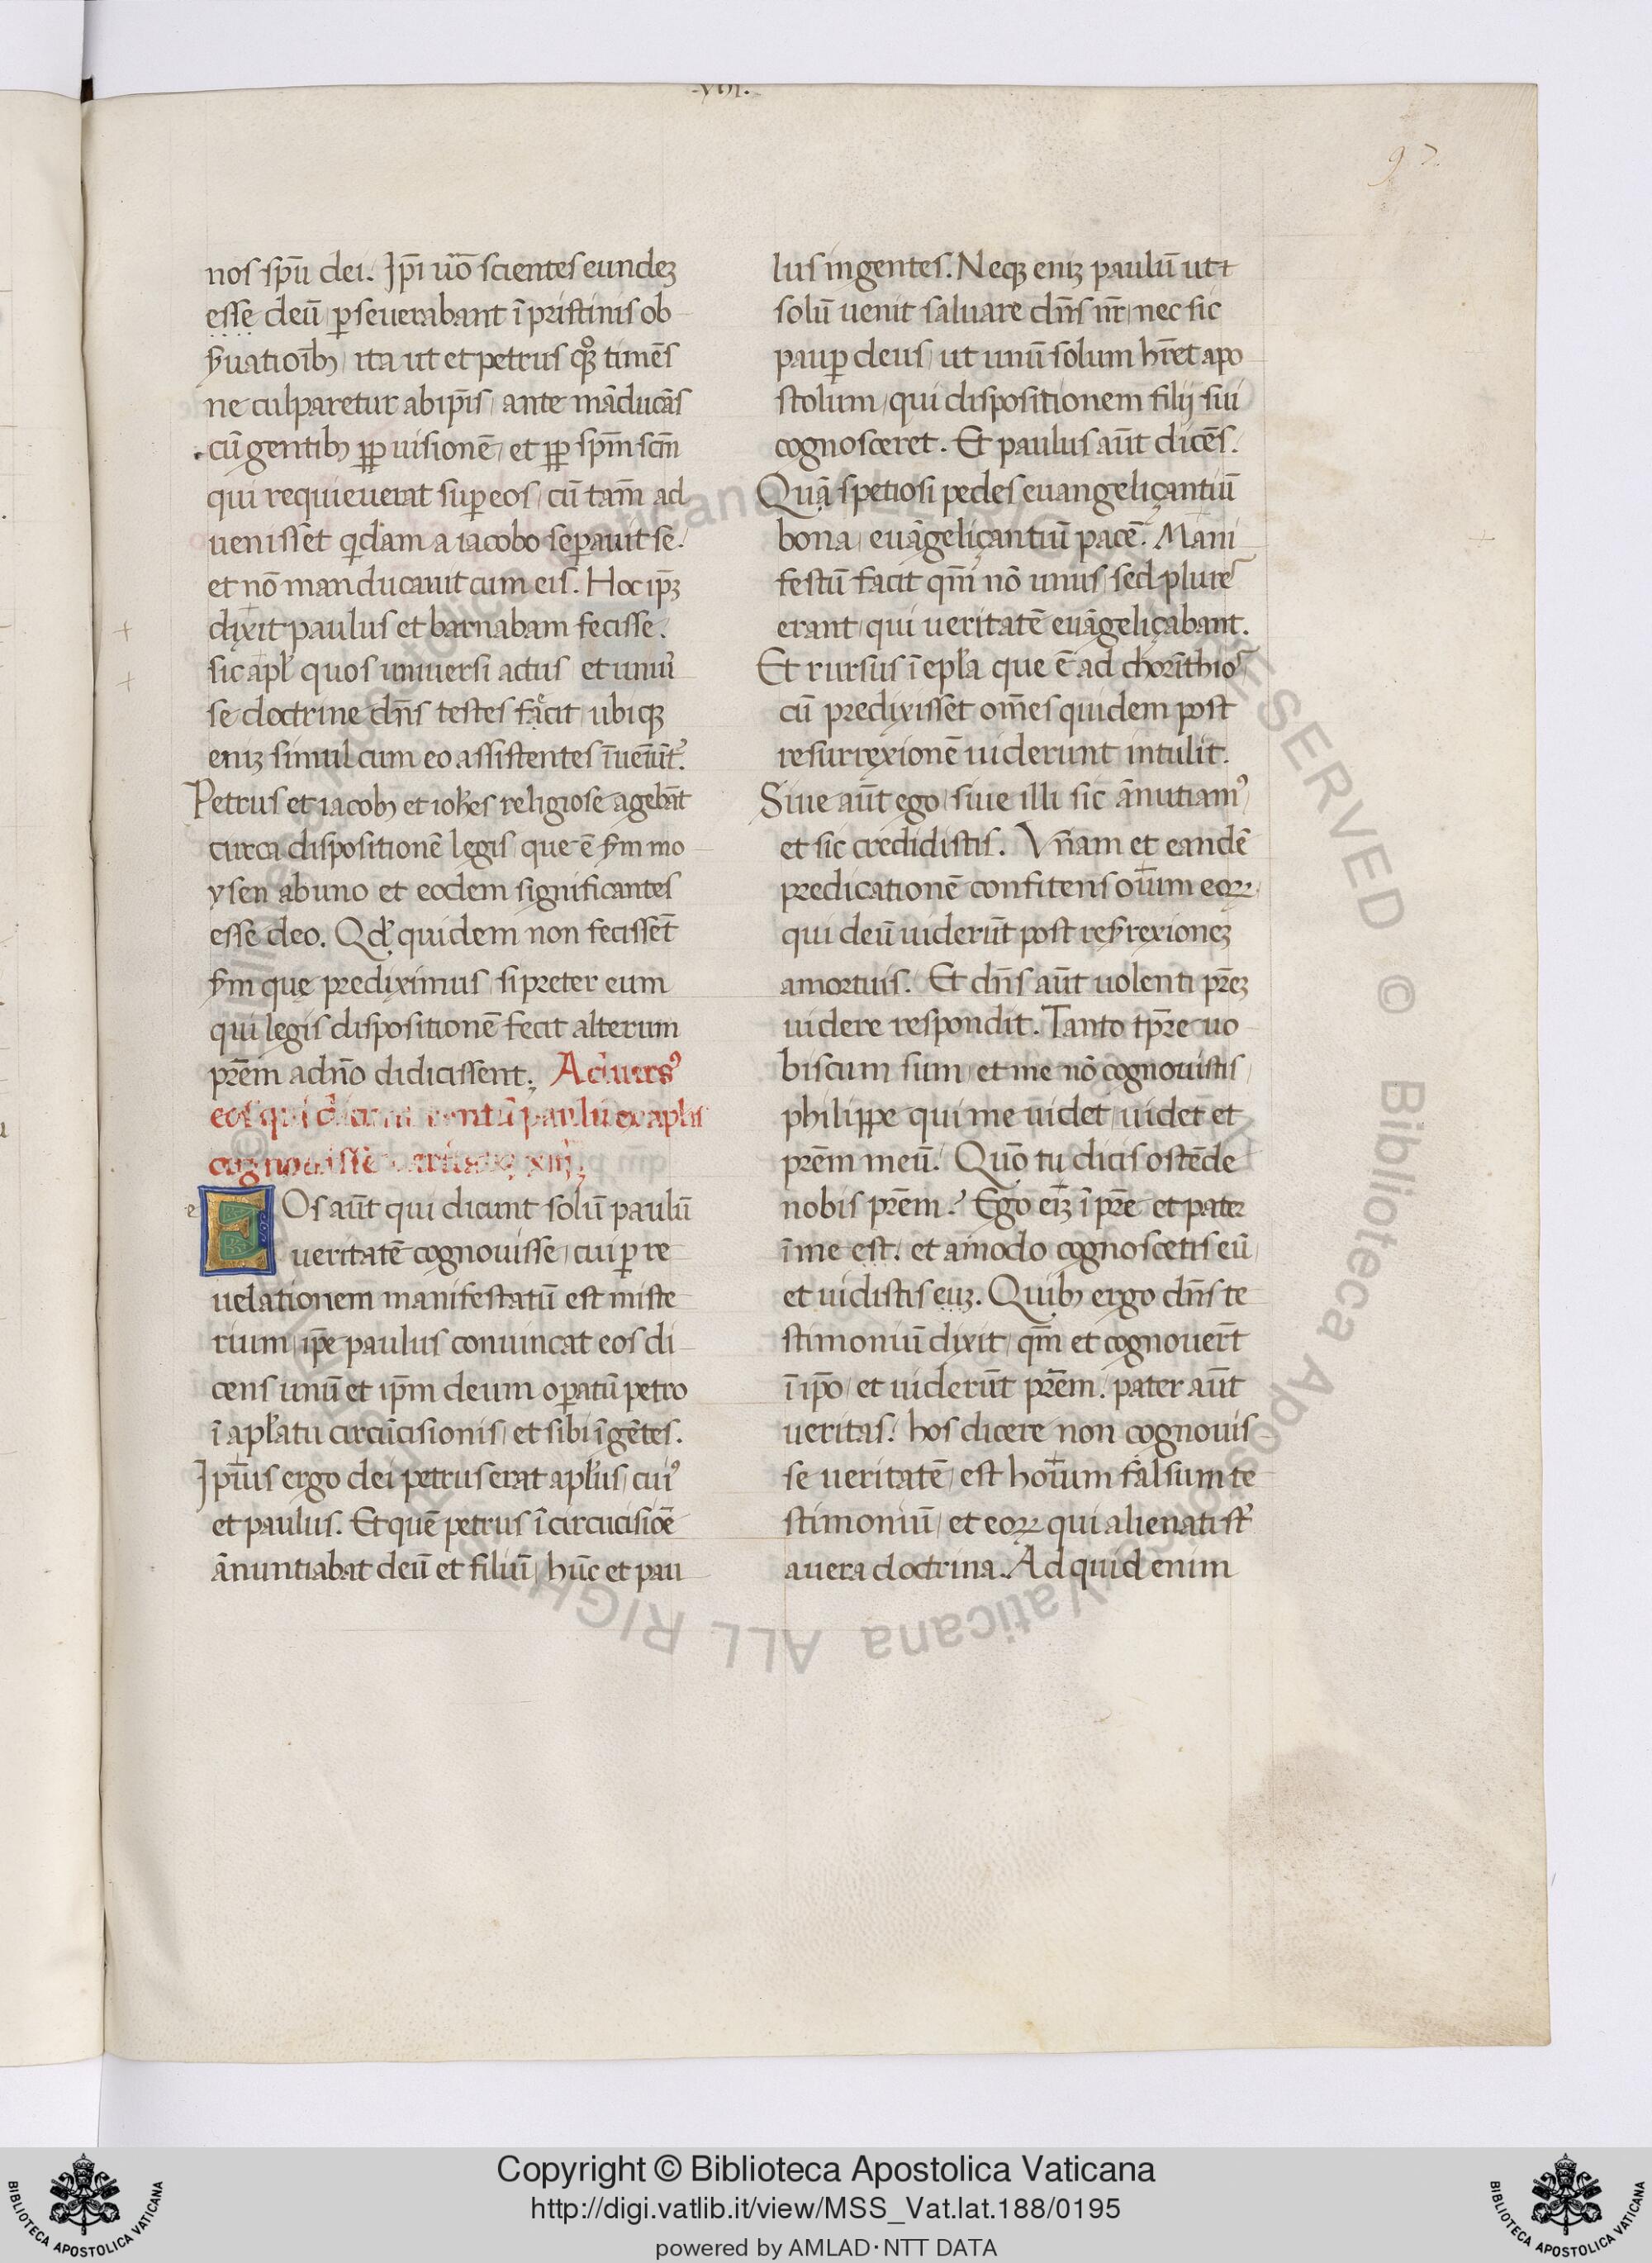 .VIII.
97
nos sp̄u dei. Jp̄i ūo scientes eundeꝫ
esse deū ꝑseuerabant ī pristinis ob
ẜuatiōibꝫ, ita ut et petrus qꝫ timēs
ne culparetur ab ip̄is, ante māducās
cū gentibꝫ ꝓꝑ uisionē, et ꝓꝑ sp̄m sc̄m
qui requieuerat suꝑ eos, cū tam̄ ad
uenissēt qdam a iacobo seꝑauit se.
et nō manducauit cum eis. Hoc ip̄ꝫ
dixit paulus et barnabam fecisse.
sic apl̄i quos uniuersi actus et uniū
se doctrine dn̄s testes fac̄it, ubiqꝫ
eniꝫ simul cum eo assistentes īueīūt᷑.
Petrus et iacobꝫ et ioh̄es religiose agebāt
circa dispositionē legis, que ē ẜm mo
ysen ab uno et eodem significantes
esse deo. Qd̄ quidem non fecissēt
ẜm que prediximus, si preter eum
qui legis dispositionē fecit alterum
pr̄em a dn̄o didicissent. Aduersꝰ
eos qui dicunt paulū ex apl̄is
cognouisse ueritatē, xiij,
e
EOs aūt qui dicunt solū paulū
ueritatē cognouisse, cui ꝑ re
uelationem manifestatū est miste
rium, ip̄e paulus conuincat eos di
cens unū et ip̄m deum oꝑatū petro
ī apl̄atu circūcisionis, et sibi ī gētes.
Jpīus ergo dei petrus erat apl̄us, cuiꝰ
et paulus. Et quē petrus ī circūcisiōe
ānuntiabat deū et filiū, hūc et pau
lus in gentes. Neqꝫ eniꝫ paulū ut
solū uenit saluare dn̄s nr̄, nec sic
pauꝑ deus, ut unū solum hr̄et apo
stolum, qui dispositionem filij sui
cognosceret. Et paulus aūt dicēs.
Quā spetiosi pedes euangeliçantiū
bona, euāgeliçantiū pacē. Mani
festū facit qm̄ nō unus, sed plures
erant, qui ueritatē euāgeliçabant.
Et rursus ī epl̄a que ē ad chorīthios
cū predixisset om̄es quidem post
resurrexionē uiderunt intulit.
Siue aūt ego, siue illi sic ānūtiamꝰ,
et sic credidistis. Vnam et eandē
predicationē confitens oīum eoꝝ,
qui deū uiderūt post reẜrexioneꝫ
a mortuis. Et dn̄s aūt uolenti pr̄eꝫ
uidere respondit. Tanto tp̄re uo
biscum sum, et me nō cognouistis,
philippe qui me uidet, uidet et
pr̄em meū. Quō tu dicis ostēde
nobis pr̄em? Ego eiꝫ ī pr̄e et pater
ī me est. et amodo cognoscetis eū,
et uidistis euꝫ. Quibꝫ ergo dn̄s te
stimoniū dixit, qm̄ et cognouer̄t
ī ip̄o, et uiderūt pr̄em. pater aūt
ueritas. hos dicere non cognouis
se ueritatē, est hoīum falsum te
stimoniū, et eoꝝ qui alienati st̄
a uera doctrina. Ad quid enim
Copyright © Biblioteca Apostolica Vaticana
http://digi.vatlib.it/view/MSS_Vat.lat.188/0195
powered by AMLAD·NTT DATA
BIBLIOTECA APOSTOLICA VATICANA
BIBLIOTECA APOSTOLICA VATICANA